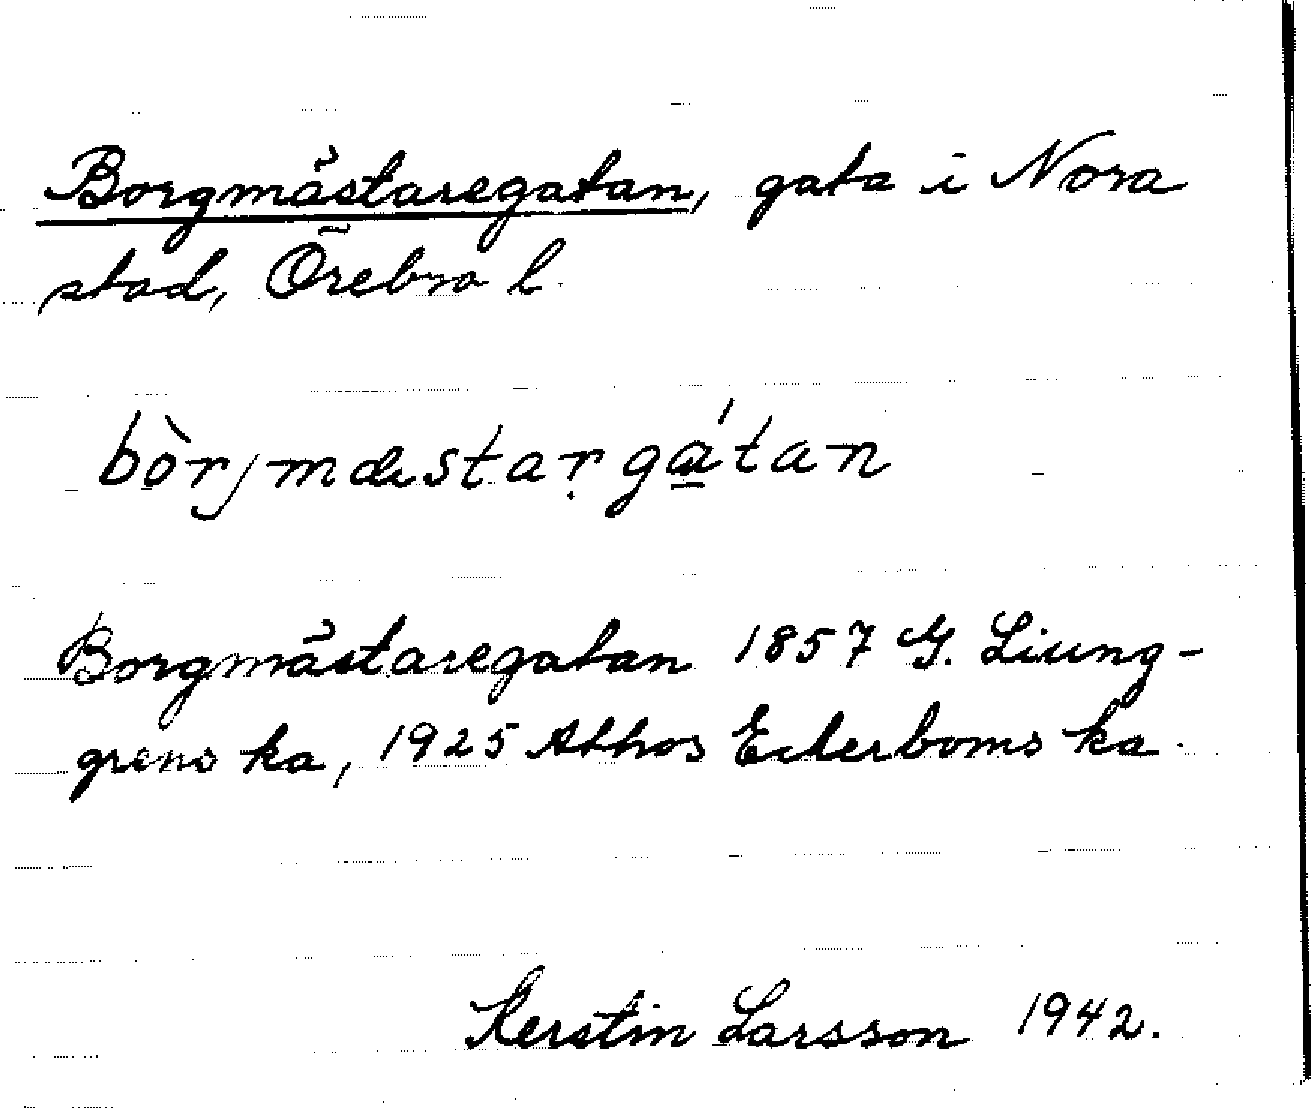 Borgmästaregatan, gata i Nora
stad, Örebro l.
bòrjmæstargá̲tan
Borgmästaregatan 1857 G. Ljung-
grens ka, 1925 Athos Ederboms ka.
Kerstin Larsson 1942.